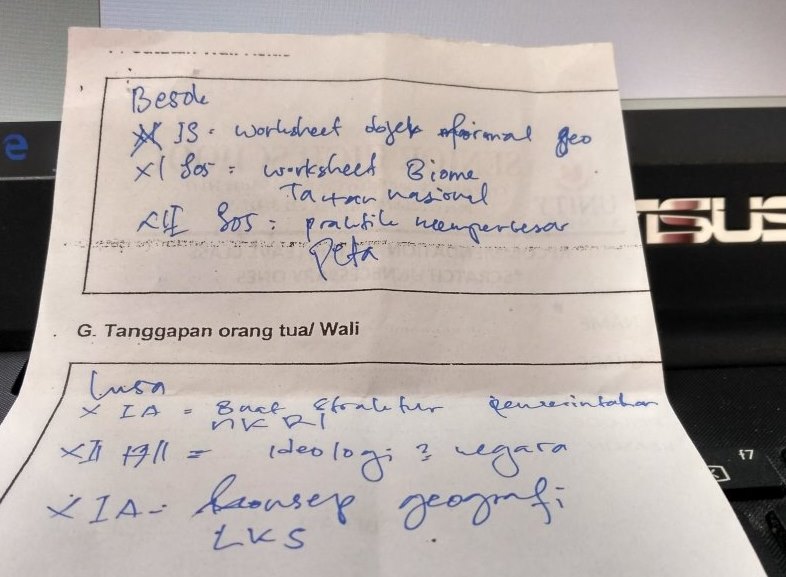 Besok
X IS = worksheet objek formal geo
XI Sos = worksheet Biome
Tatanan nasional
XII Sos = praktik memperbesar
Peta
G. Tanggapan orang tua/ Wali
Lusa
X IA = Buat Struktur pemerintahan
NKRI
XII = Ideologi 2 negara
X IA = konsep geografi
LKS
ASUS
f7